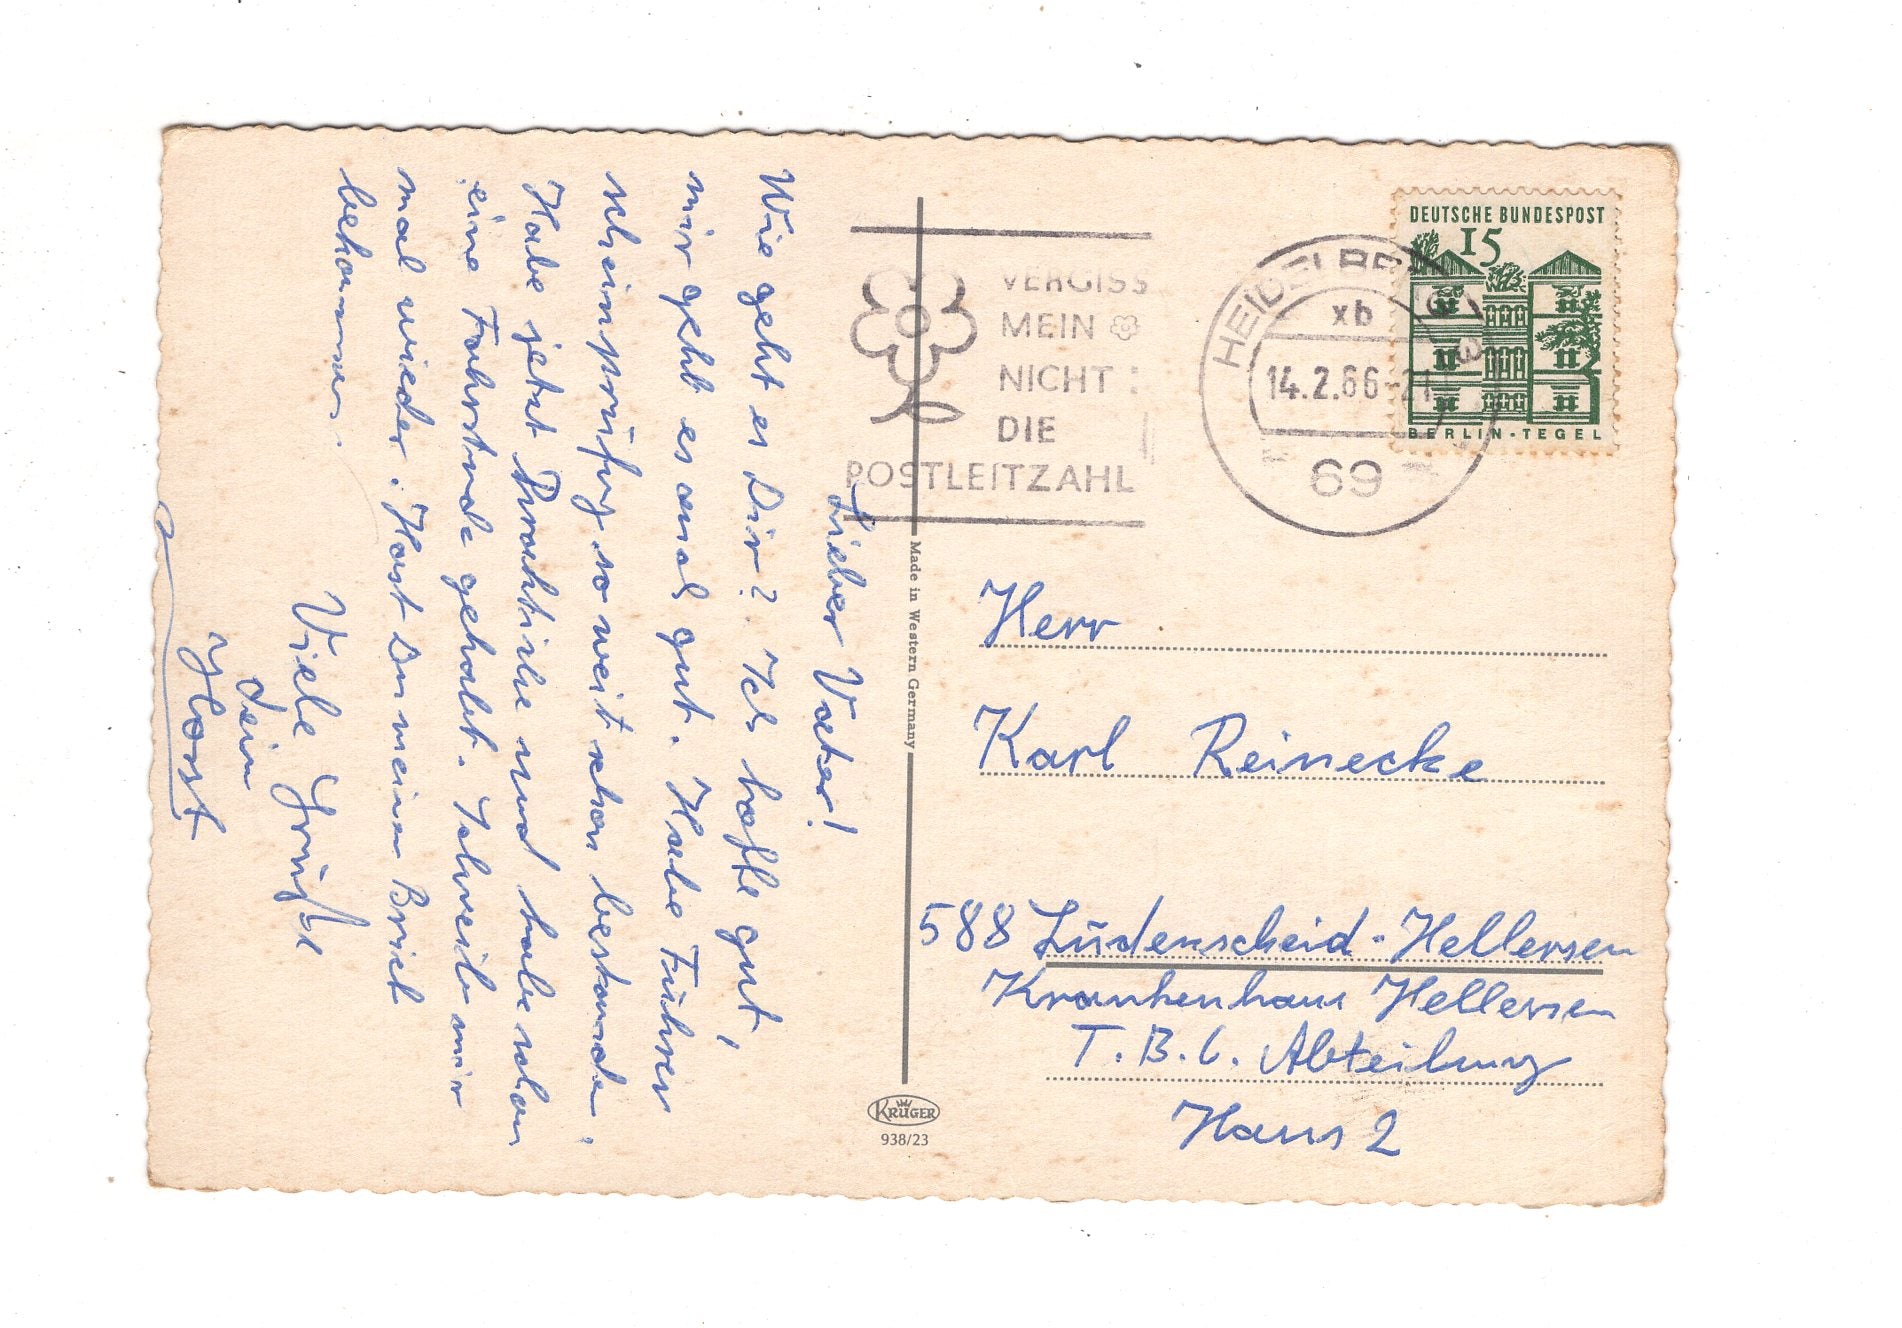 Lieber Vater!
Wie geht es Dir? Ich hoffe gut,
mir geht es auch gut. Habe Führer
scheinprüfung so weit schon bestanden.
Habe jetzt Pracktische und habe schon
eine Fahrstunde gehabt. Schreibe mir
mal wieder. Hast Du meinen Brief
bekommen.
Viele Grüße
dein
Horst
VERGISS
MEIN
NICHT:
DIE
POSTLEITZAHL
HEIDELBERG
xb
14.2.66-21
69
DEUTSCHE BUNDESPOST
15
BERLIN-TEGEL
Made in Western Germany
Herr
Karl Reinecke
588 Lüdenscheid-Hellersen
Krankenhaus Hellersen
T.B.C. Abteilung
Haus 2
KRÜGER
938/23